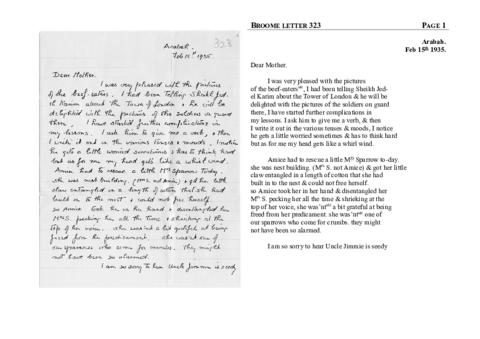 323
Arabah.
Feb 15th 1935.
Dear Mother.
I was very pleased with the pictures
of the beef-eaters. I had been telling Sheikh Jed-
el Karim about the Tower of London & he will be
delighted with the pictures of the soldiers on guard
there. I have started further complications in
my lessons. I ask him to give me a verb, & then
I write it out in the various tenses & moods, I notice
he gets a little worried sometimes & has to think hard
but as for me my head gets like a whirl wind.
Amice had to rescue a little Mrs Sparrow today.
she was nest building, (Mrs S. not Amice) & got her little
claw entangled in a length of cotton that she had
built in to the nest & could not free herself.
so Amice took her in her hand & disentangled her
Mrs S. pecking her all the time & shrieking at the
top of her voice. she wasn't a bit grateful at being
freed from her predicament. she wasn't one of
our sparrows who come for crumbs. they might
not have been so alarmed.
I am so sorry to hear Uncle Jimmie is seedy
BROOME LETTER 323 PAGE 1
Arabah.
Feb 15th 1935.
Dear Mother.
I was very pleased with the pictures
of the beef-eaters, I had been telling Sheikh Jed-
el Karim about the Tower of London & he will be
delighted with the pictures of the soldiers on guard
there, I have started further complications in
my lessons. I ask him to give me a verb, & then
I write it out in the various tenses & moods, I notice
he gets a little worried sometimes & has to think hard
but as for me my head gets like a whirl wind.
Amice had to rescue a little Mrs Sparrow to-day.
she was nest building (Mrs S. not Amice) & got her little
claw entangled in a length of cotton that she had
built in to the nest & could not free herself.
so Amice took her in her hand & disentangled her
Mrs S. pecking her all the time & shrieking at the
top of her voice, she was'nt a bit grateful at being
freed from her predicament. she was'nt one of
our sparrows who come for crumbs. they might
not have been so alarmed.
I am so sorry to hear Uncle Jimmie is seedy